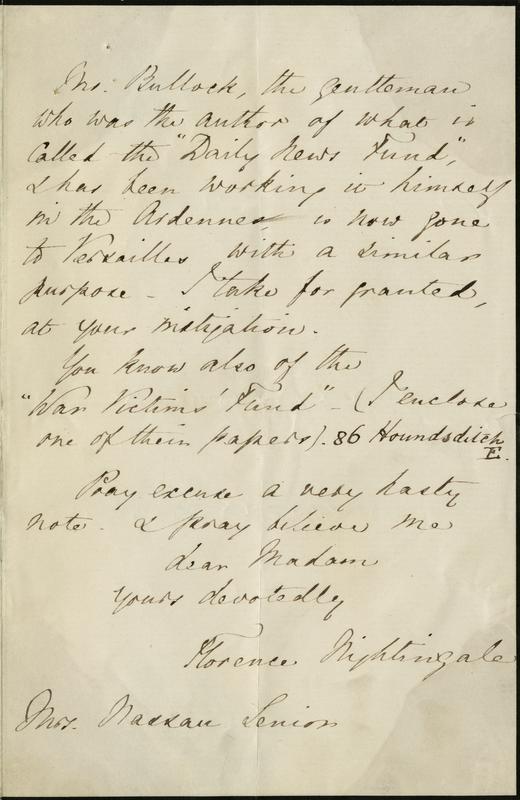 Mr. Bullock, the gentleman
who was the author of what is
called the "Daily News Fund",
& has been working it himself
in the Ardennes is now gone
to Versailles with a similar
purpose - I take for granted,
at your instigation.
You know also of the
"War Victims' Fund" - (I enclose
one of their papers). 86 Houndsditch
E.
Pray excuse a very hasty
note. & pray believe me
dear Madam
yours devotedly
Florence Nightingale
Mrs. Nassau Senior